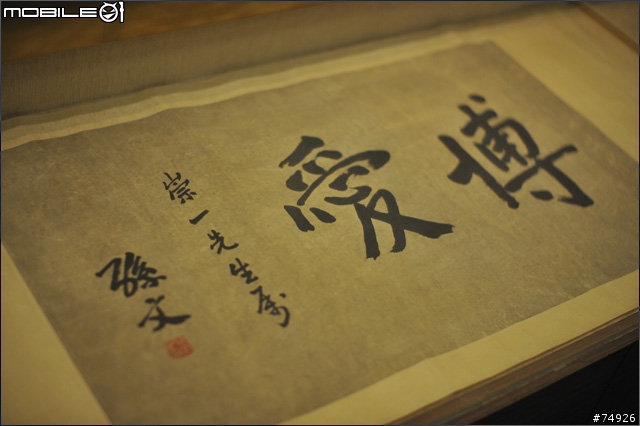 MOBILE01
博愛
崇一先生屬
孫文
#74926